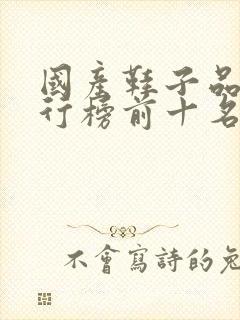 國產鞋子品
行榜前十名
不會寫詩的兔